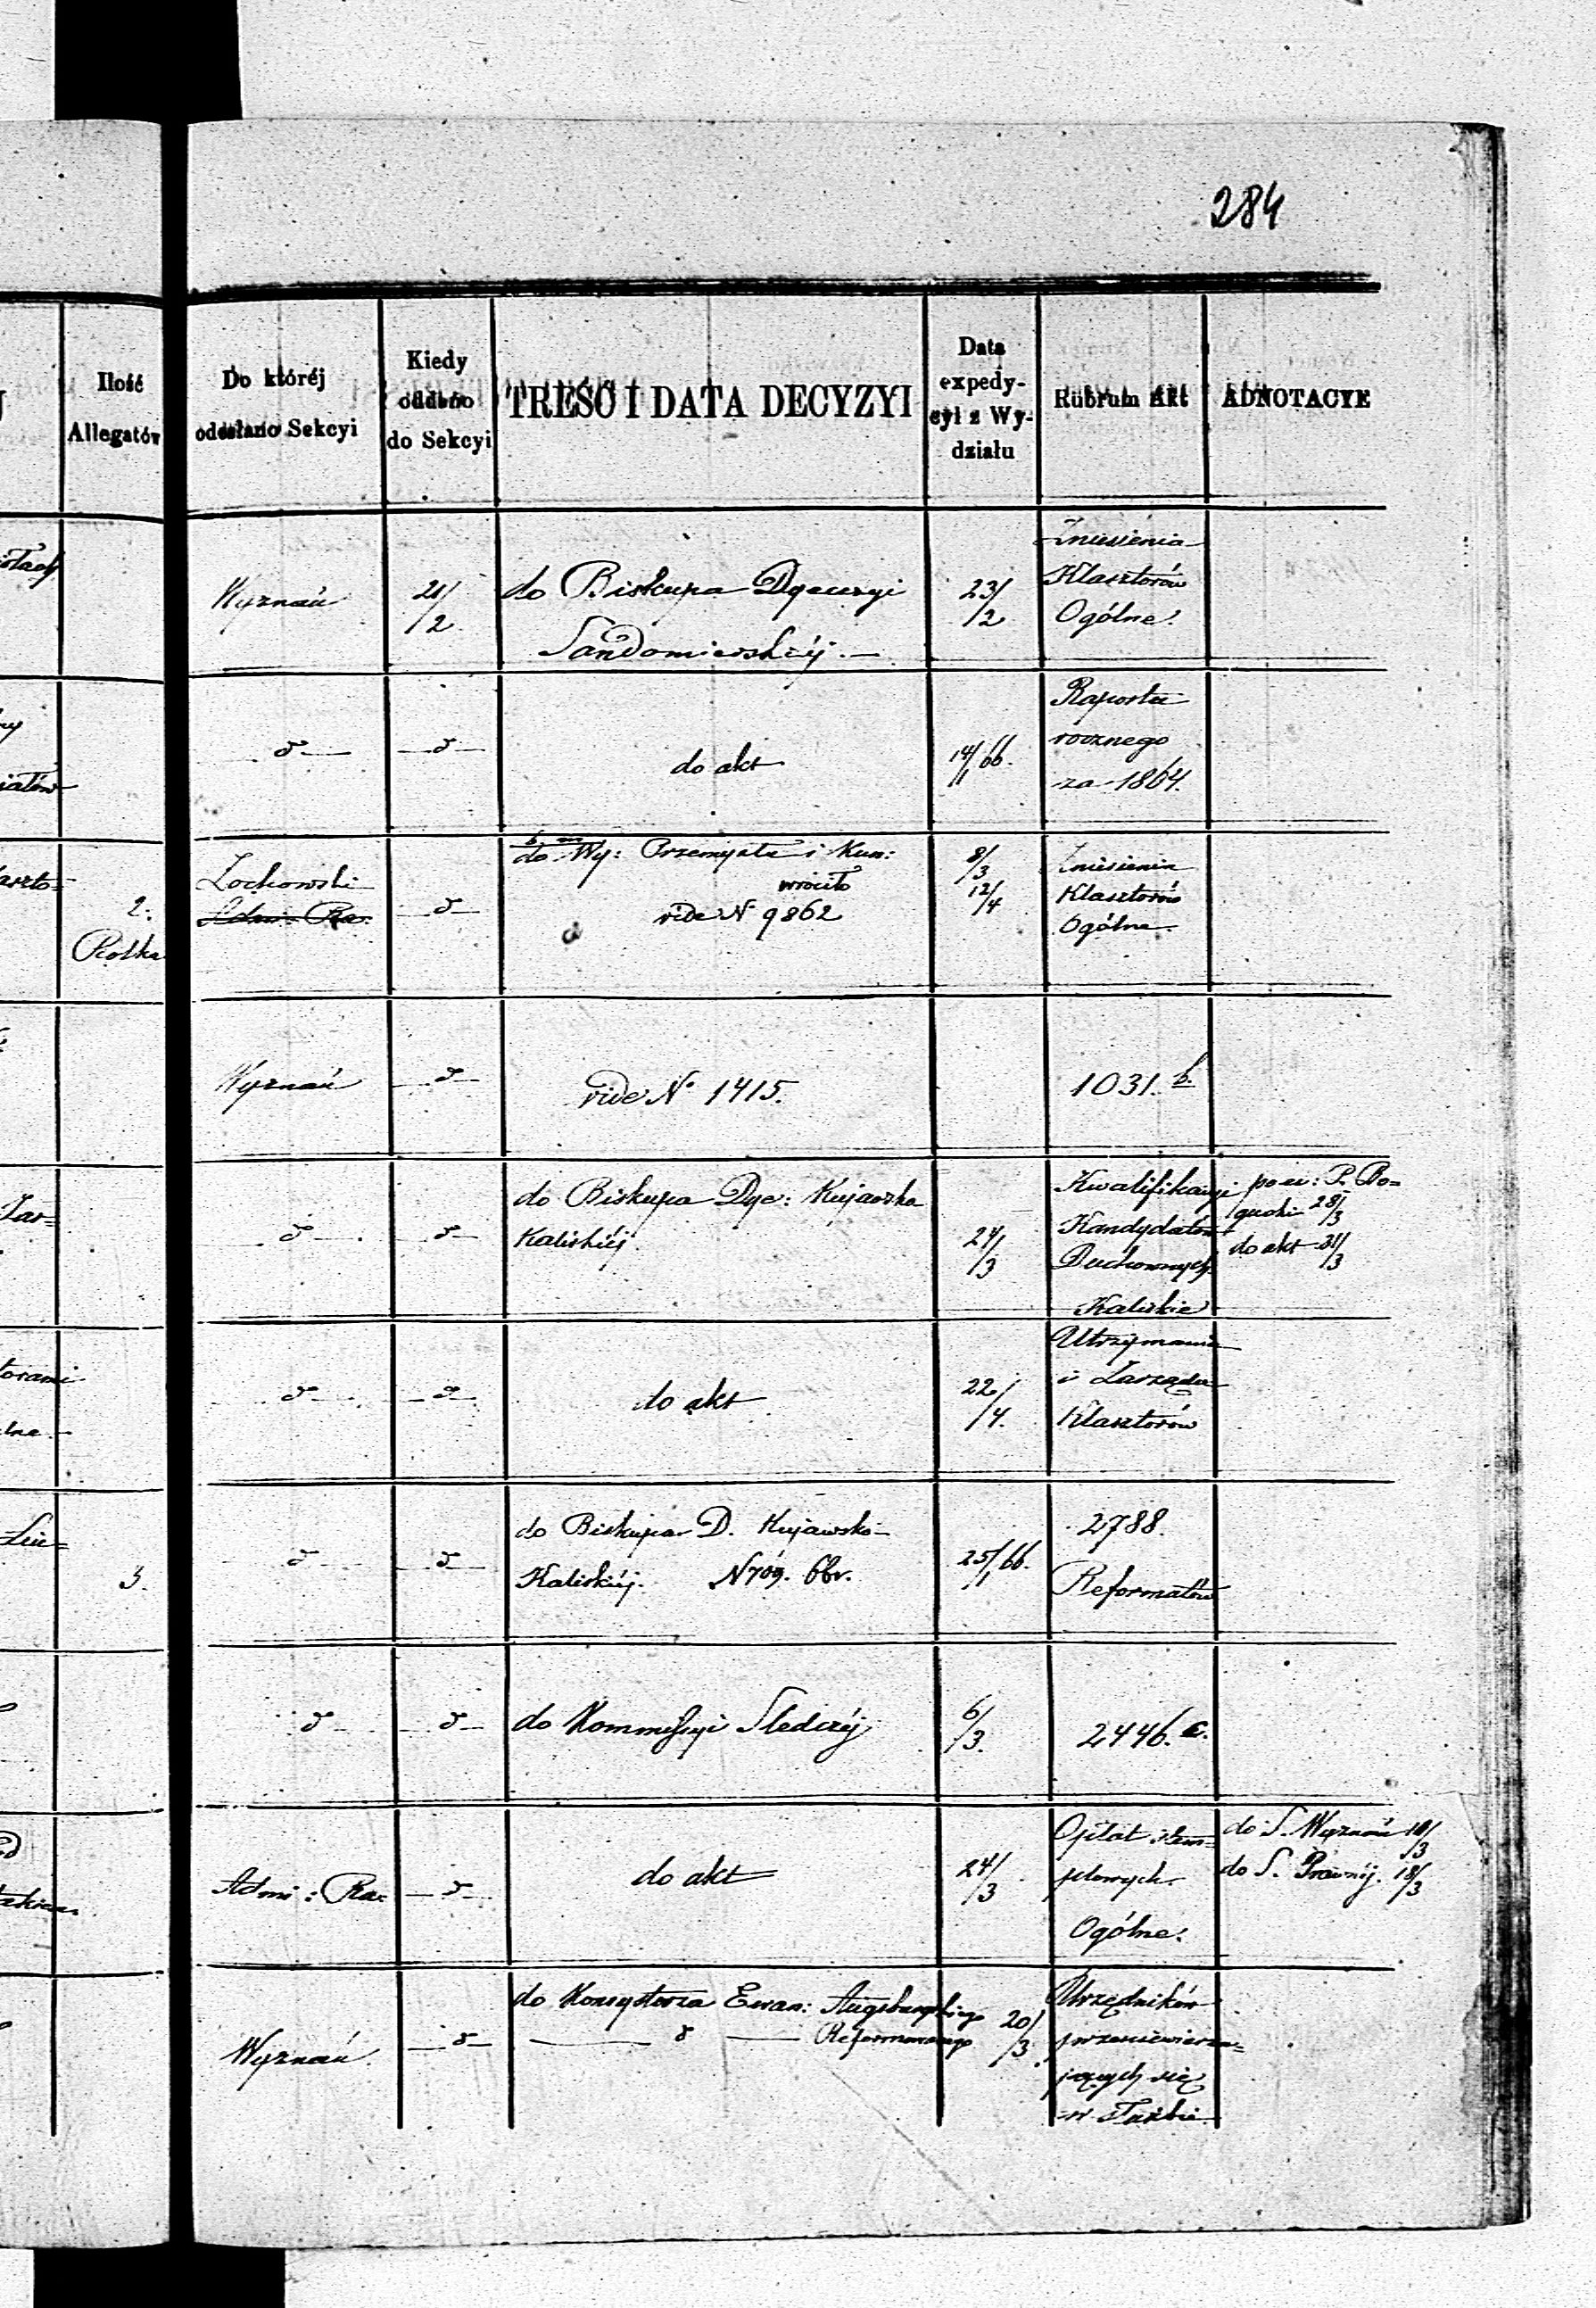 284
Ilość
Allegatów
Do któréj
odesłano Sekcyi
Kiedy
oddano
do Sekcyi
TREŚĆ I DATA DECYZYI
Data
expedy-
cyi z Wy-
działu
Rubrum Akt
ADNOTACYE
Wyznań
21/2
do Biskupa Dyecezyi
Sandomierskiéj.—
23/2
Zniesienia
Klasztorów
Ogólne.
do akt
14/1 66.
Raportu
rocznego
za 1864.
2.
Żochowski
do Wy: Przemysłu i Kun:
wróciło
vide N 9862
8/3
12/4
Zniesienia
Klasztorów
Ogólne.
Wyznań
vide No 1415.
1031. b.
do Biskupa Dye: Kujawsko
Kaliskiéj.
24/3
Kwalifikacyi
Kandydatów
Duchownych
Kaliskie
28/3
do akt 31/3
do akt
22/4.
Utrzymania
i Zarządu
Klasztorów
3.
do Biskupa D. Kujawsko-
Kaliskiéj. N 709. 66r.
25/1 66.
2788.
Reformatów
do Kommissyi Śledczéj
6/3.
2446. c.
Admi: Ra:
do akt
24/3
Opłat stem=
plowych
Ogólne.
do S. Wyznań 10/3
do S. Prawnéj. 18/3
Wyznań.
do Konsystorza Ewan: Augsburgskiego
Reformowanego
20/3
Urzędników
przeniewierza=
jących się
w służbie